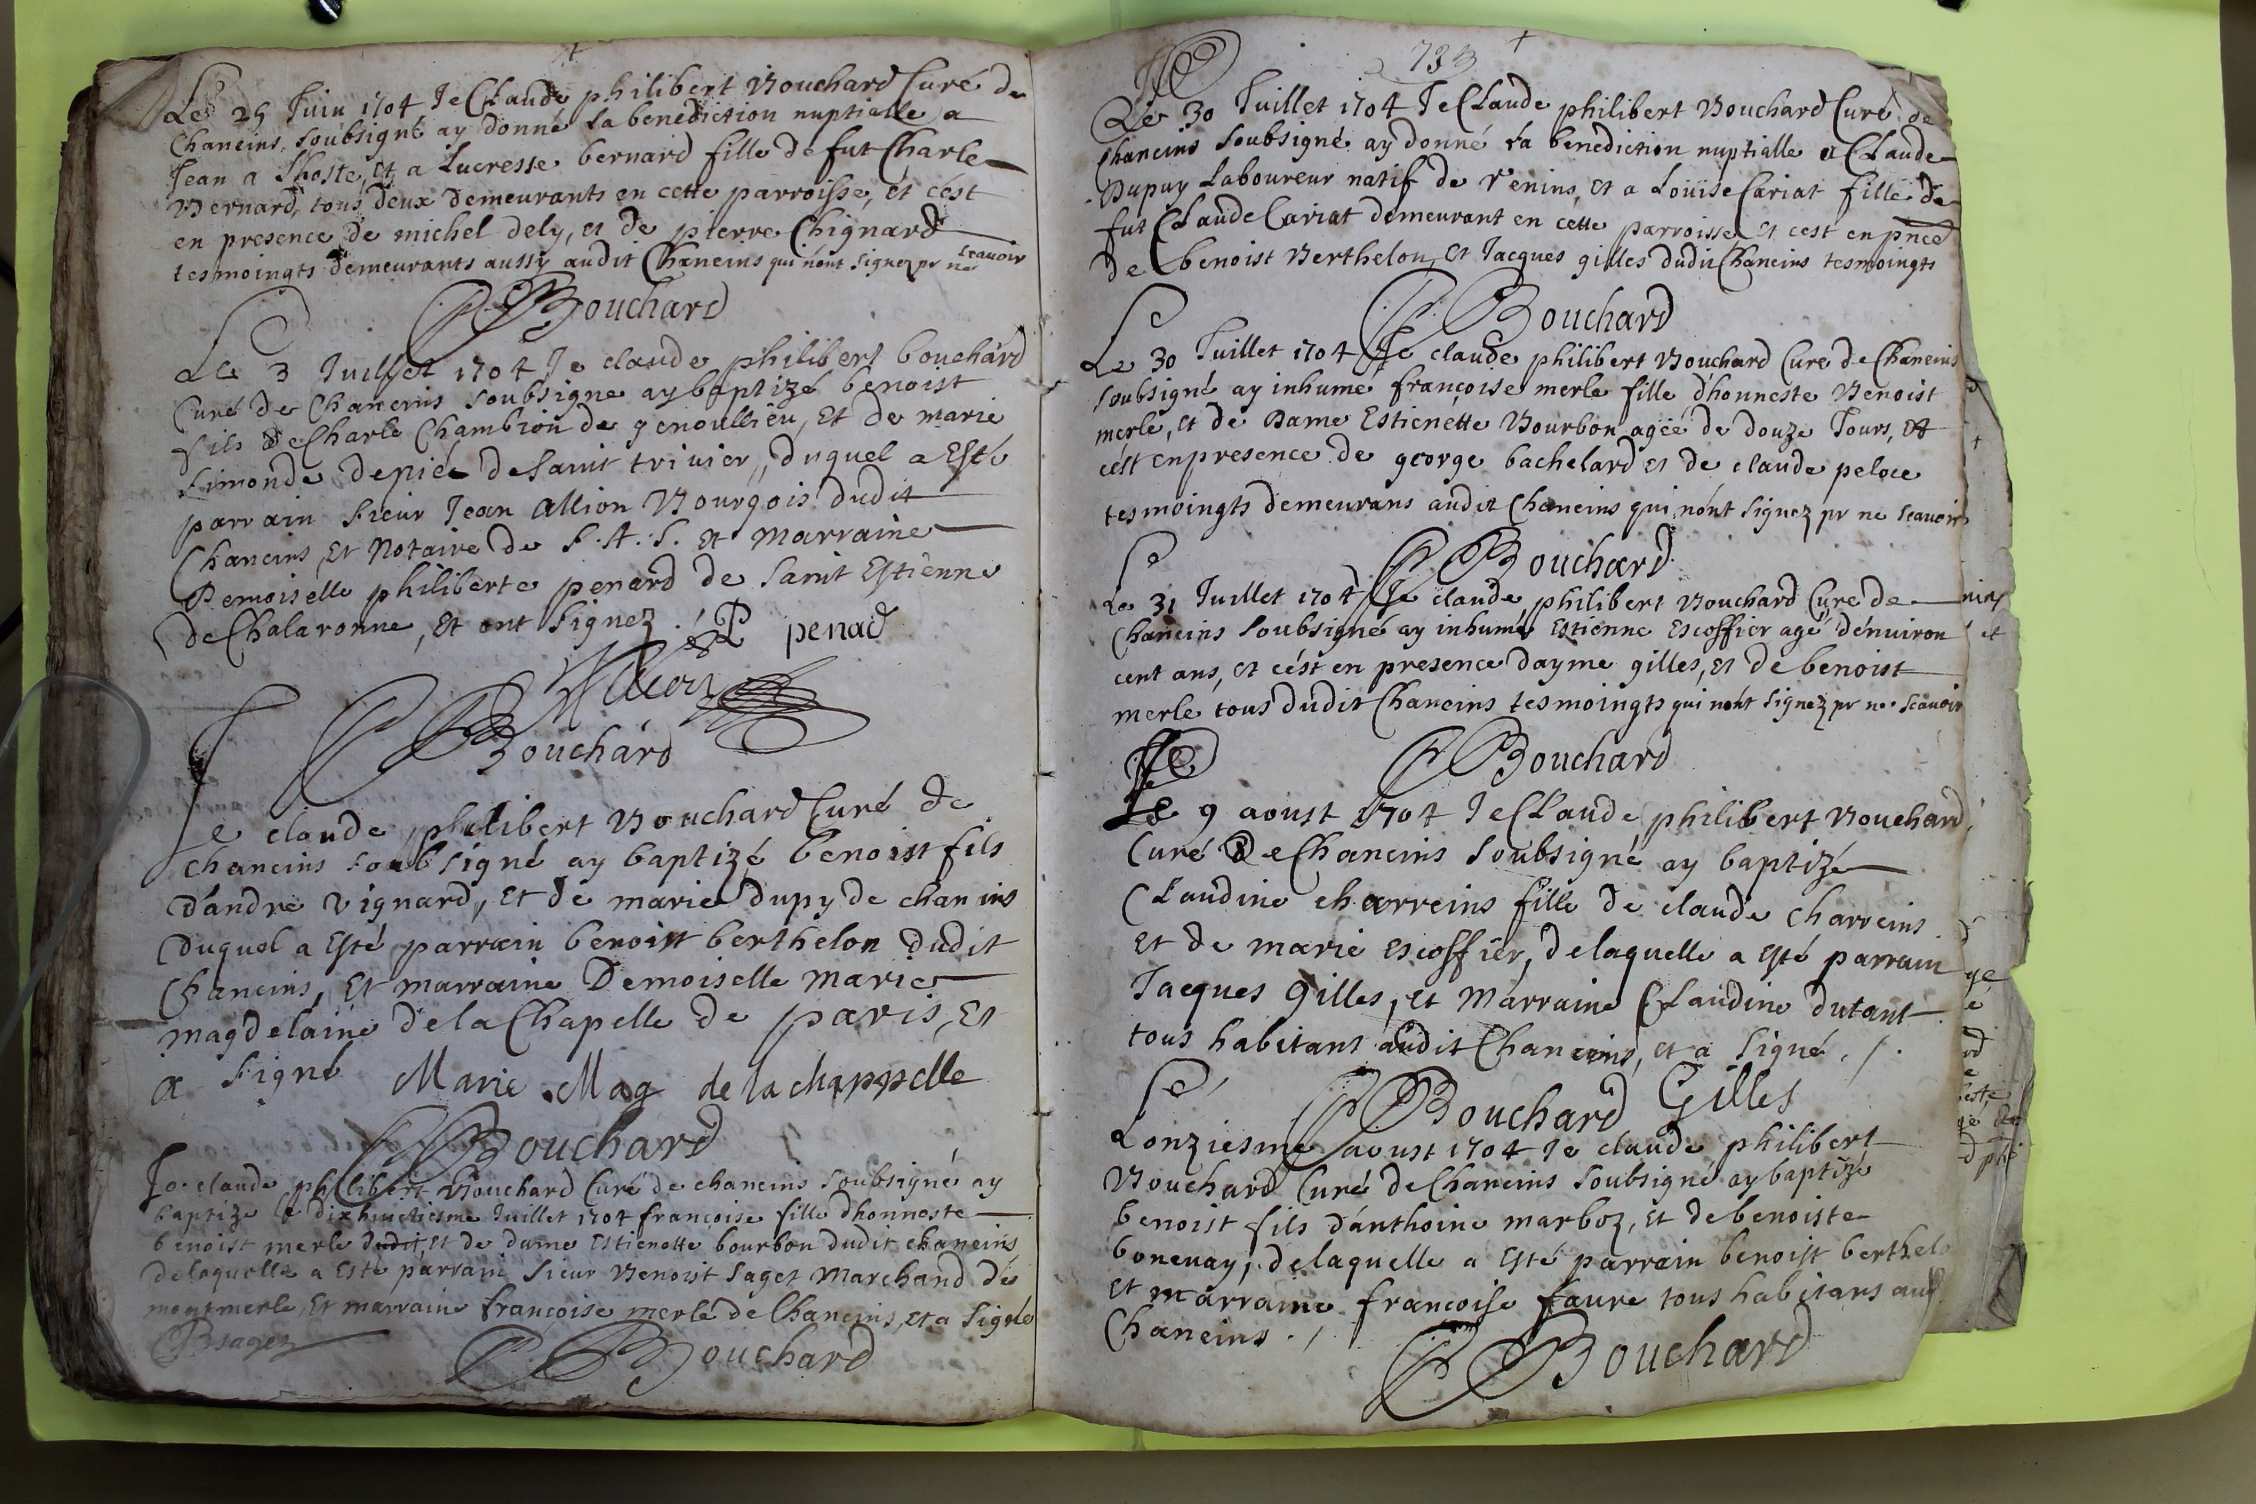 Le 25 Juin 1704 Je Claude philibert Bouchard Curé de
Chaneins, soubsigné ay donné la benediction nuptialle a
Jean a Lhoste, et a Lucresse bernard fille de fut Charle
Bernard, tous deux demeurants en cette parroisse, et c'est
en presence de michel dely, et de pierre Chignard
tesmoingts demeurants aussy audit Chaneins qui nont signez pr ne scavoir
CP Bouchard
Le 3 Juillet 1704 Je claude philibert bouchard
Curé de Chaneins soubsigne ay baptizé benoist
fils de Charle Chambion de genoullieu, Et de marie
Limonde depiée de saint trivier, duquel a Esté
parrain sieur Jean Allion Bourgois dudit
Chaneins, Et Notaire de S. A. S. Et Marraine
Demoiselle philiberte penard de Saint Estienne
de Chalaronne, Et ont signez ./. P penad
Bouchard
Je claude philibert Bouchard Curé de
chaneins soubsigné ay baptizé benoist fils
d'andre vignard, Et de marie dupy de chanins
Duquel a Esté parrain benoist berthelon dudit
Chaneins, Et marraine Demoiselle marie
magdelaine de la Chapelle de paris, Et
a signé Marie Mag de la chappelle
CP Bouchard
Je claude philibert Bouchard Curé de chaneins soubsigné ay
baptize le dixhuictiesme Juillet 1704 francoise fille dhonneste
benoist merle dudit, et de dame Estienette bourbon dudit chaneins
delaquelle a esté parrain sieur Benoist saget Marchand de
montmerle, Et marraine francoise merle de Chaneins, et a signé
Bsaget CP Bouchard
733
Le 30 Juillet 1704 Je Claude philibert Bouchard Curé de
Chaneins soubsigné ay donné la benediction nuptialle a Claude
Dupuy Laboureur natif de renins, et a Loüise Cariat fille de
fut Claude Cariat demeurant en cette parroisse et cest en pnce
de benoist Berthelon, Et Jacques gilles dudit Chaneins tesmoingts
CP Bouchard
Le 30 Juillet 1704 Je claude philibert Bouchard Curé de Chaneins
soubsigné ay inhumé françoise merle fille dhonneste Benoist
merle, et de Dame Estienette Bourbon agée de douze Jours, et
cést en presence de george bachelard et de claude peloce
tesmoingts demeurans audit Chaneins qui nónt signez pr ne scavoir
CP Bouchard
Le 31 Juillet 1704 Je claude philibert Bouchard Curé de
Chaneins soubsigné ay inhumé Estienne Escoffier agé dénuiron
cent ans, et cést en presence dayme gilles, et de benoist
merle tous dudit Chaneins tesmoingts qui nónt signez pr ne scavoir
CP Bouchard
Le 9 aoust 1704 Je Claude philibert Bouchard
Curé de Chaneins soubsigné ay baptizé
Claudine charreins fille de claude charreins
Et de marie escoffier, delaquelle a esté parrain
Jacques Gilles, et Marraine Claudine dutant
tous habitant audit Chaneins, et a signé ./.
CP Bouchard Gilles
Lonziesme aoust 1704 Je claude philibert
Bouchard Curé de Chaneins soubsigné ay baptizé
benoist fils d'anthoine marboz, et de benoiste
bonenay, delaquelle a Esté parrain benoist berthelo
Et marraine francoise faure tous habitans aud
Chaneins ./.
CP Bouchard